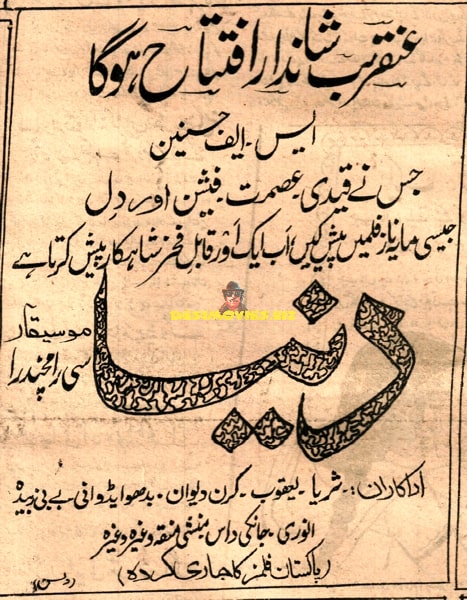 عنقریب شاندار افتتاح ہوگا
ایس۔ ایف حسنین
جس نے قیدی۔ عصمت۔ فیشن اور دل
جیسی مایہ ناز فلمیں پیش کیں اب ایک اور قابل فخر شاہکار پیش کرتا ہے
دنیا
موسیقار
سی رامچندرا
اداکاران:۔ ثریا۔ یعقوب۔ کرن دیوان۔ بدھو ایڈوانی بے بی زبیدہ
انوری۔ جانکی داس۔ منشی منقہ وغیرہ وغیرہ
(پاکستان فلمز کا جاری کردہ)